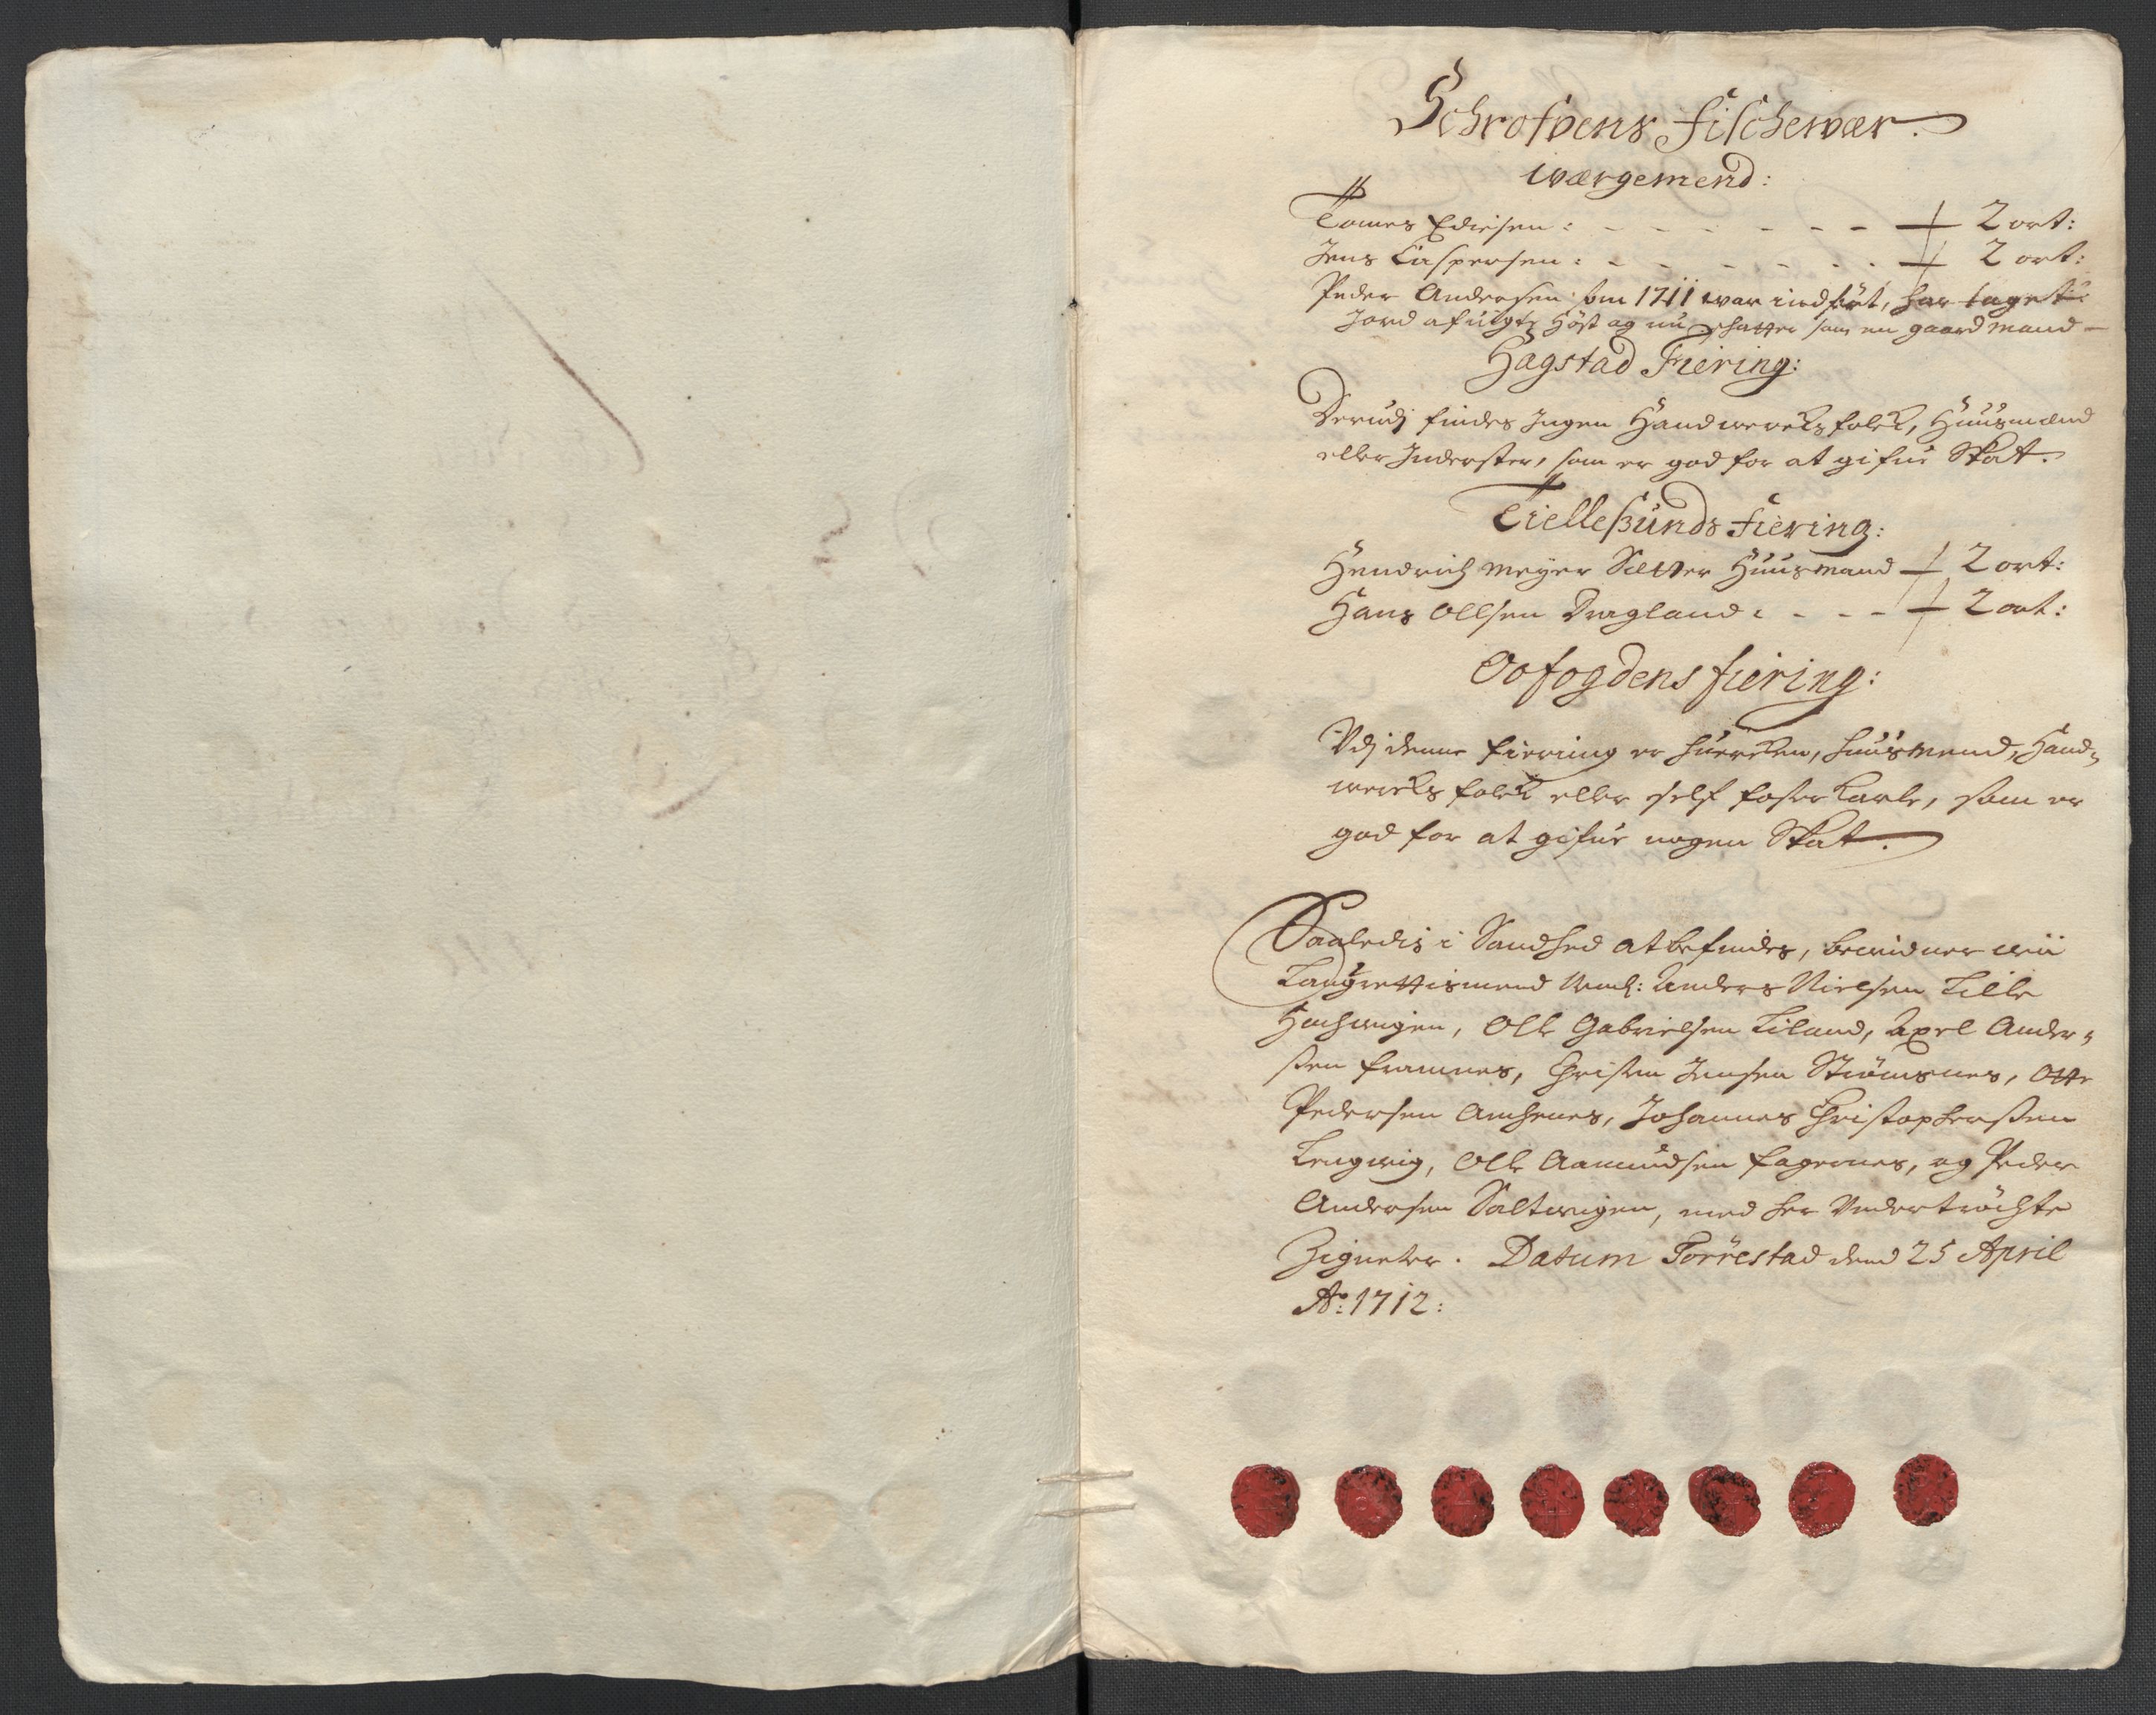 Schrofvens Fischewær.
wærgemend:
Tomes Edisen: - - - - - - - 2 ort:
Jens Caspersen: - - - - - - - 2 ort:
Peder Andersen som 1711 war indført, har taget
Jord afvigte Høst og nu schatter som en gaardmand -
Hagstad Fiering:
Derudj findes Ingen Handwercks folck, Huusmænd
eller Inderster, som er god for at gifue Skat.
Tielleßunds Fiering:
Hendrich Meyer Huusmand 2 ort:
Hans Ollsen Dragland: - - - - 2 ort:
Oofogdens fiering:
Vdj denne fiering er huercken, huusmend, Hand-
wercks folck eller self foster Karle, som er
god for at gifue nogen Skat.
Saaledis i Sandhed at befindes, bewidner wii
Laugrettismend Neml: Anders Nielsen Lille
Olle Gabrielsen Liland, Axel Ander-
ßen Framnes, Christen Jensen Strömsnes, Otte
Pedersen Anchenes, Johannes Christopherßen
Lengwig, Olle Aamundsen Fagernes, og Peder
Andersen Saltwigen, med her Undertröchte
Zigneter. Datum Torrestad dend 25 April
Ao: 1712: